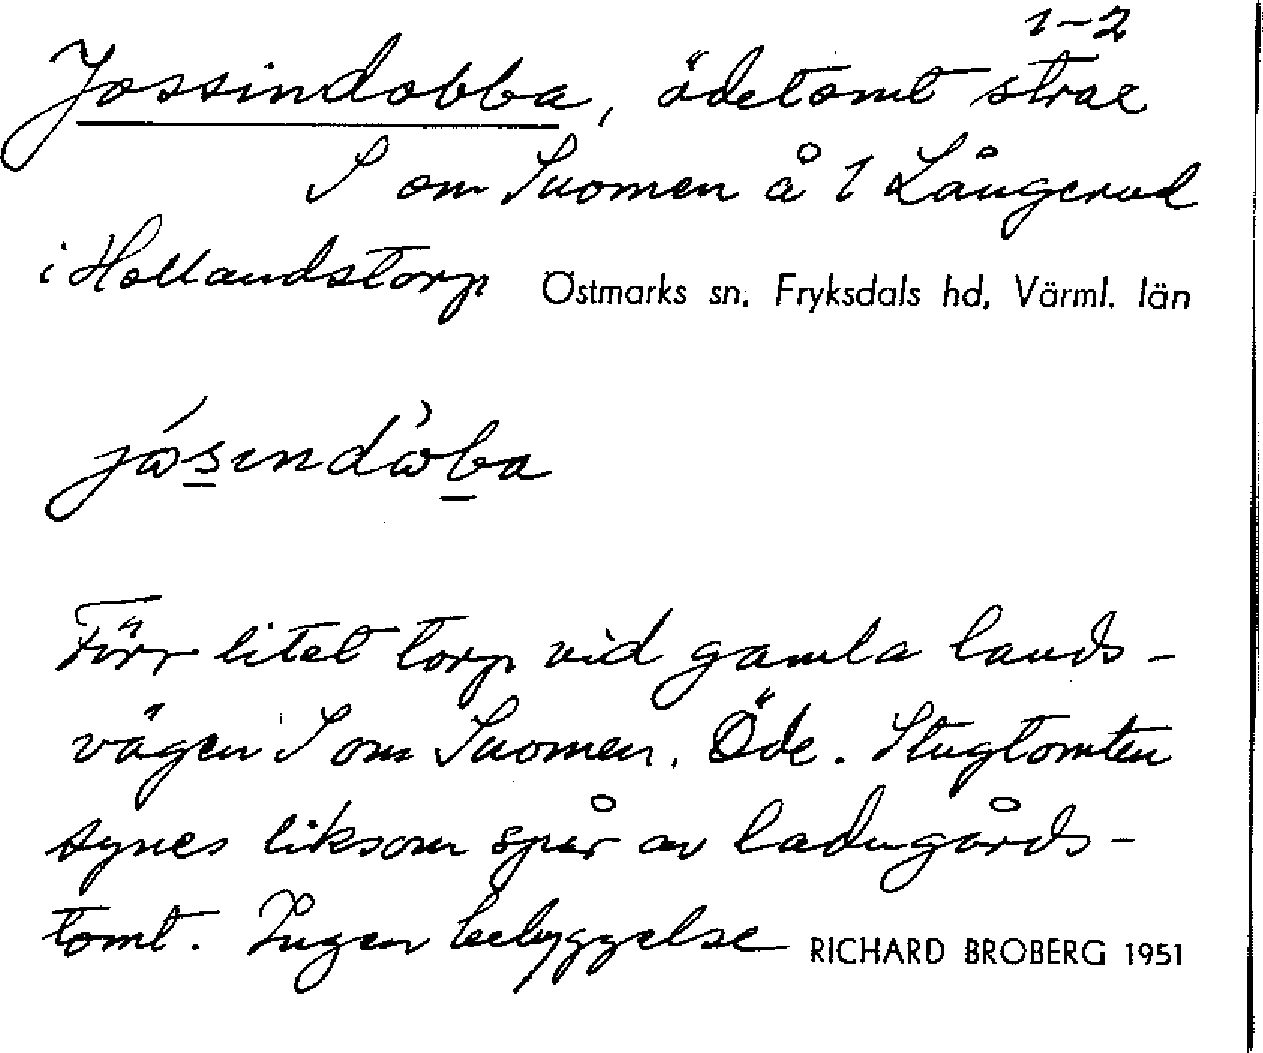 1-2
Jossindobba, ödetomt strax
S om Suomen å 1 Långerud
i Hollandstorp Östmarks sn. Fryksdals hd, Värml. län
Förr litet torp vid gamla lands-
vägen S om Suomen. Öde. Stugtomten
synes liksom spår av ladugårds-
tomt. Ingen bebyggelse RICHARD BROBERG 1951